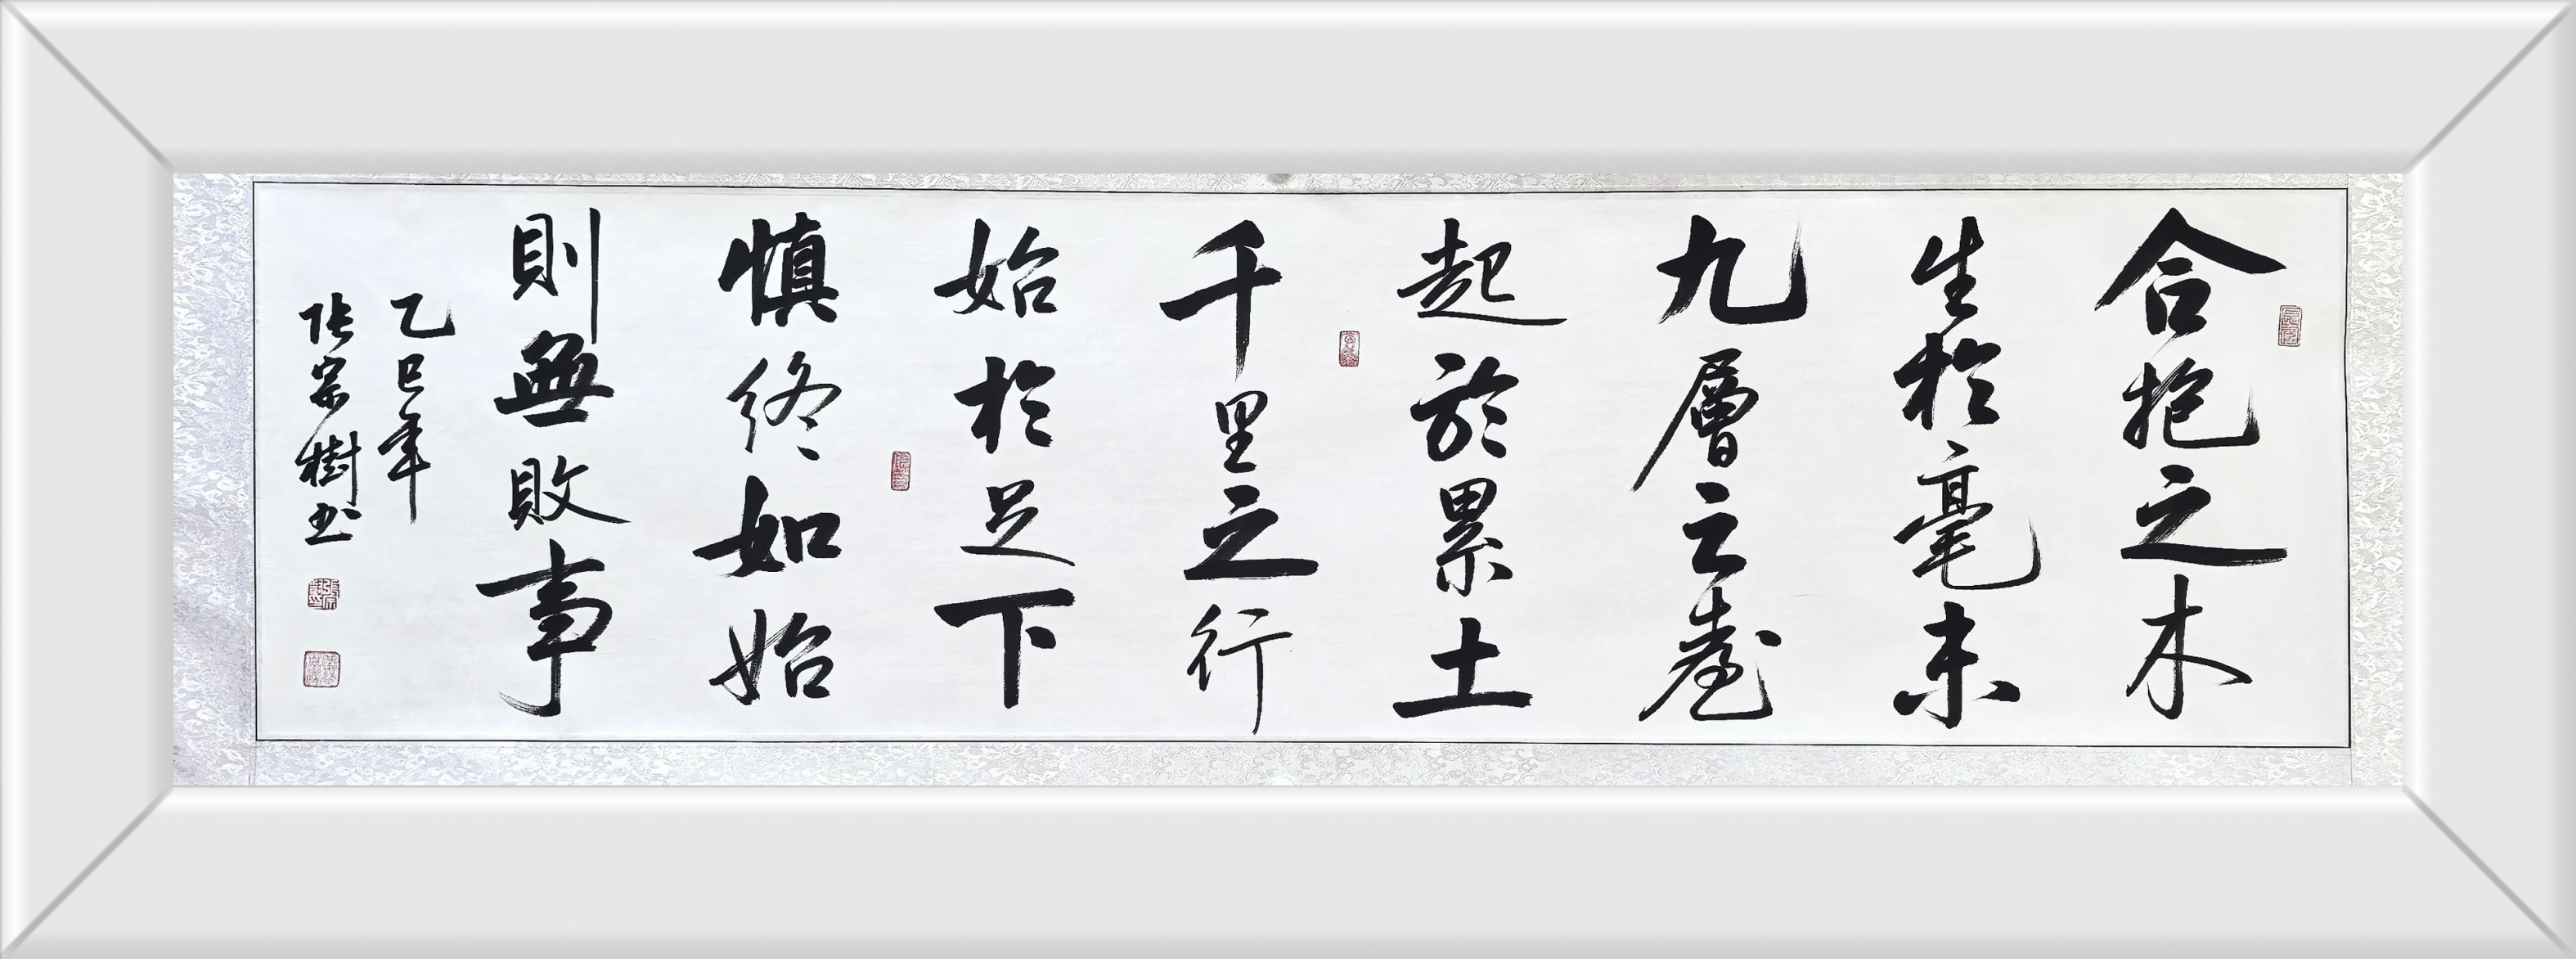 合抱之木
生於毫末
九層之臺
起於累土
千里之行
始於足下
慎終如始
則無敗事
乙巳年
张宗樹书